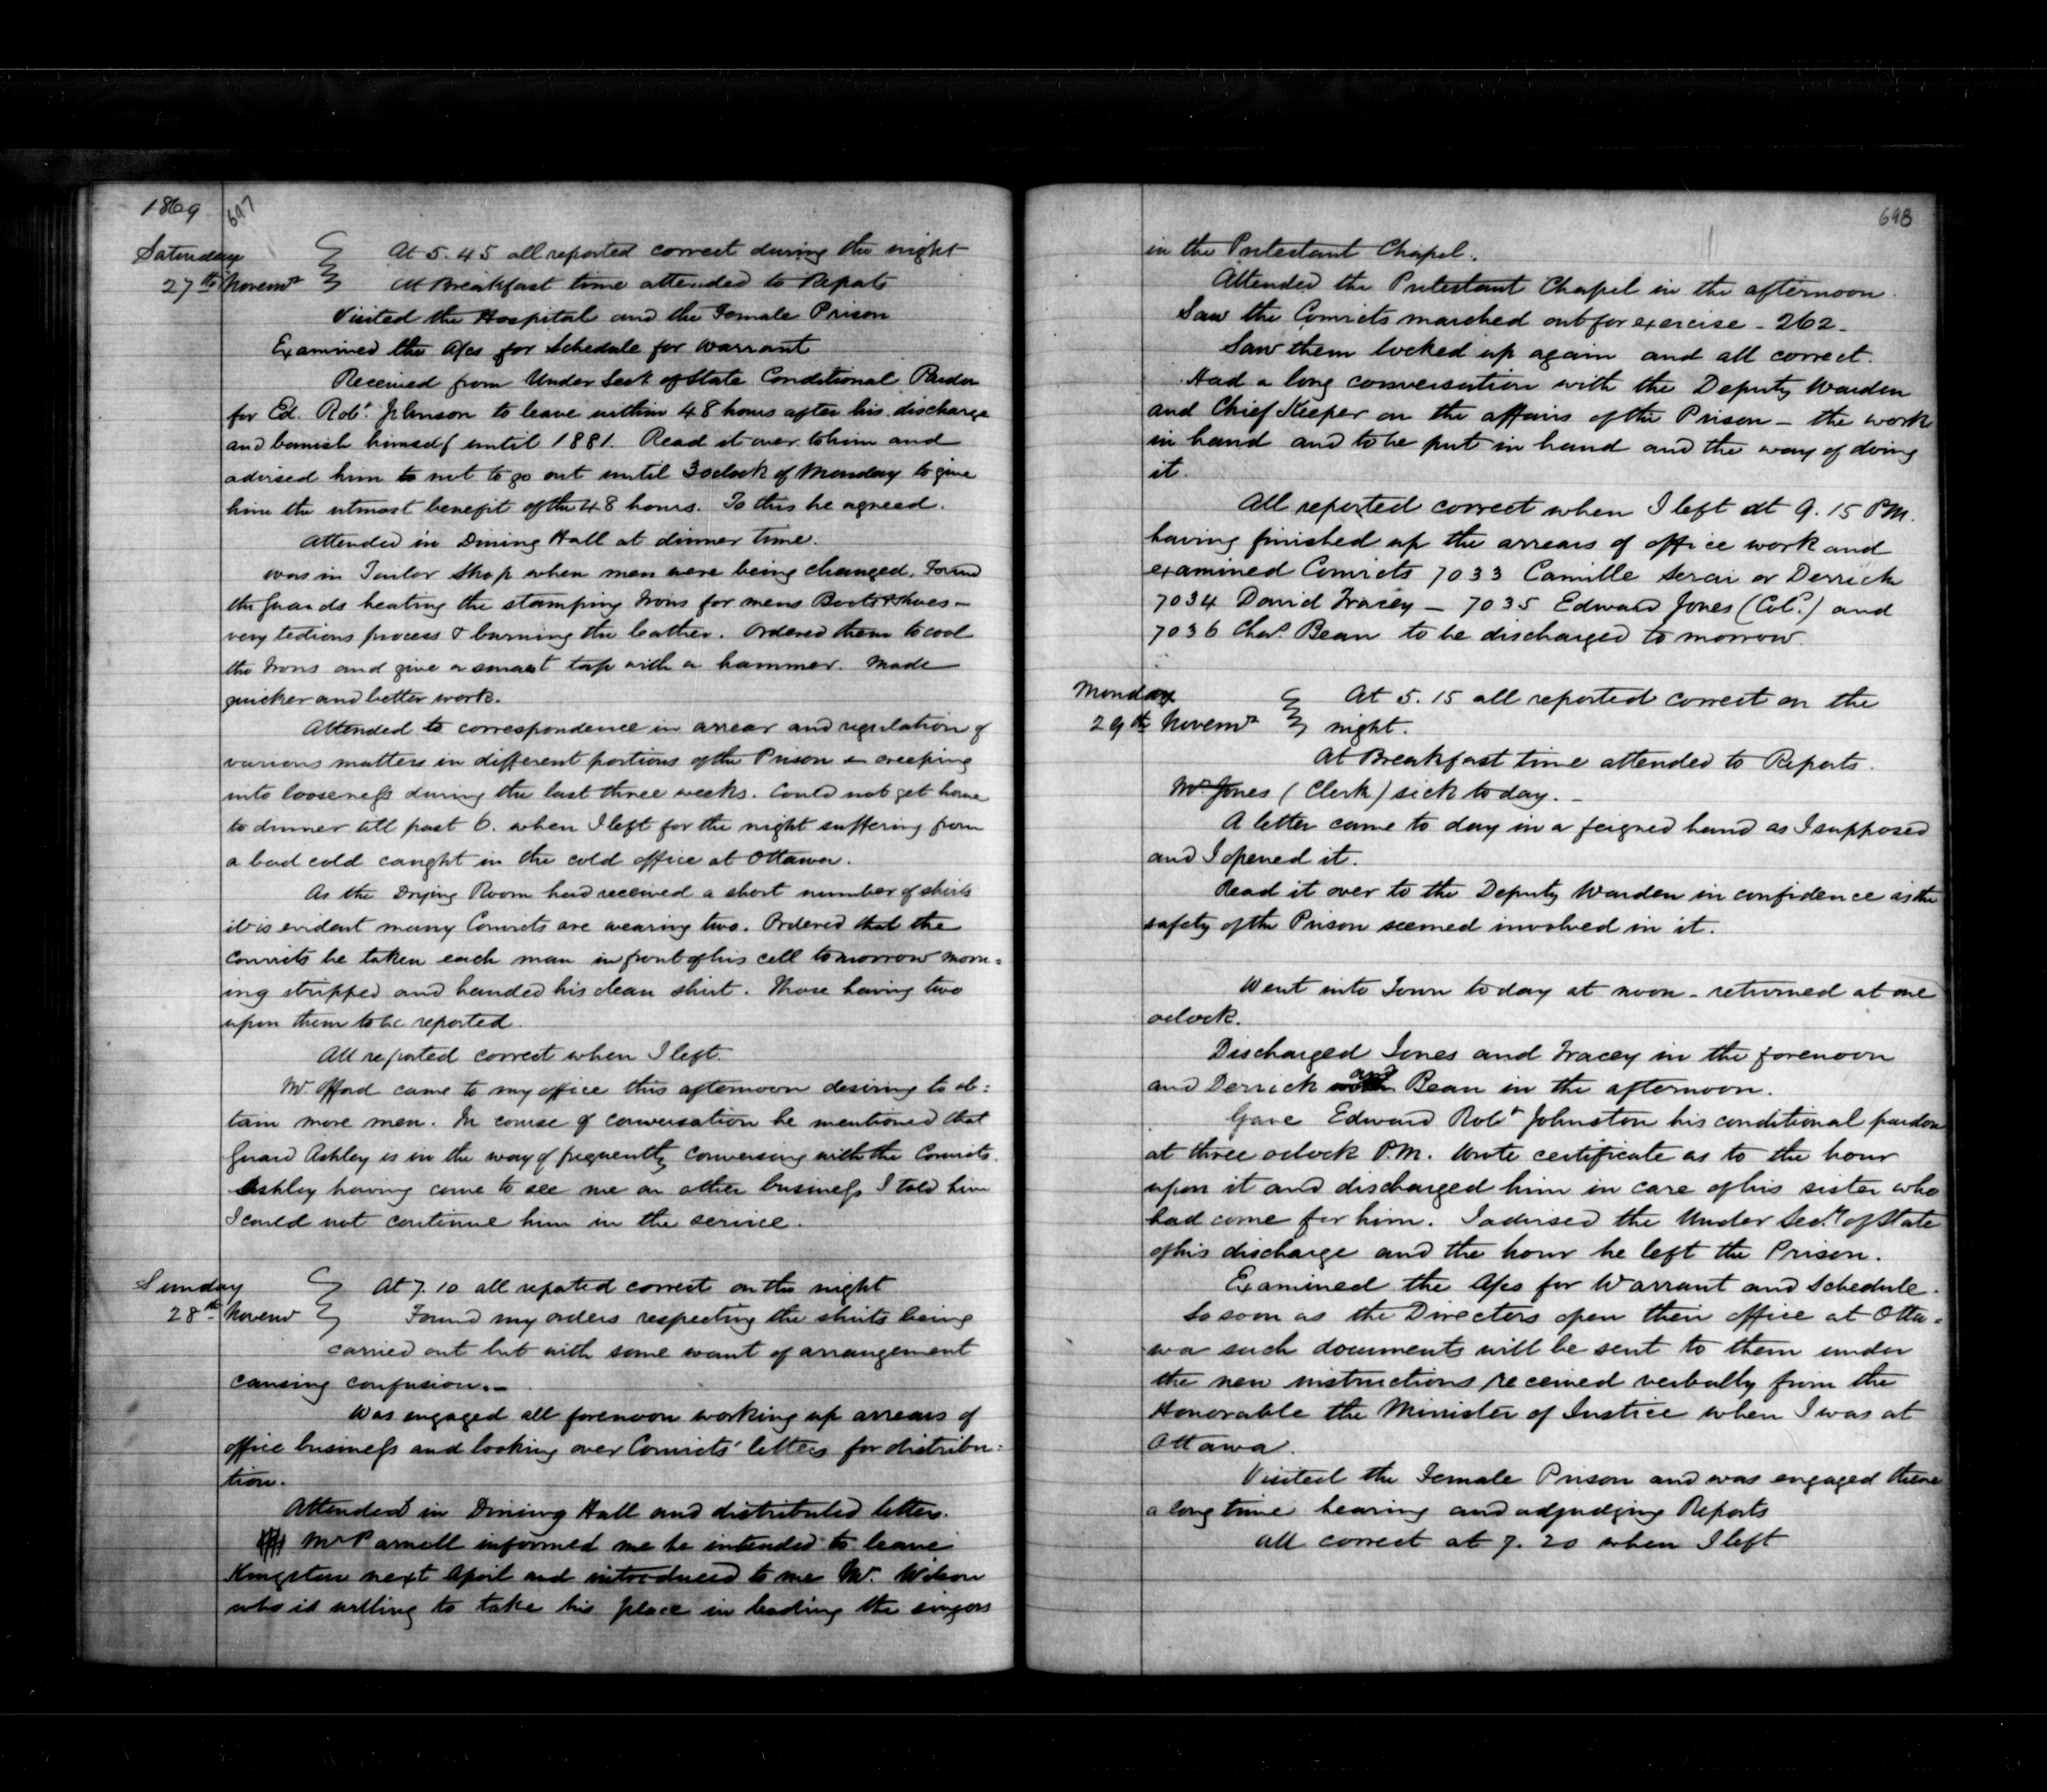 1869 697
Saturday At 5.45 all reported correct during the night
27th Novemr At Breakfast time attended to Reports
Visited the Hospital and the Female Prison
Examined the A/cs for Schedule for Warrant
Received from Under Secy of State Conditional Pardon
for Ed. Robt. Johnson to leave within 48 hours after his discharge
and banish himself until 1881. Read it over to him and
advised him to not to go out until 3 oclock of Monday to give
him the utmost benefit of the 48 hours. To this he agreed.
Attended in Dining Hall at dinner time.
Was in Tailor Shop when men were being changed. Found
the Guards heating the stamping Irons for mens Boots & Shoes -
very tedious process & burning the leather. Ordered them to cool
the Irons and give a smart tap with a hammer. Made
quicker and better work.
Attended to correspondence in arrear and regulation of
various matters in different portions of the Prison creeping
into looseness during the last three weeks. Could not get home
to dinner till past 6. when I left for the night suffering from
a bad cold caught in the cold office at Ottawa.
As the Drying Room had received a short number of shirts
it is evident many Convicts are wearing two. Ordered that the
Convicts be taken each man in front of his cell tomorrow morn=
ing stripped and handed his clean shirt. Those having two
upon them to be reported.
All reported correct when I left.
Mr. Offord came to my office this afternoon desiring to ob=
tain more men. In course of conversation he mentioned that
Guard Ashley is in the way of frequently conversing with the Convicts.
Ashley having come to see me on other business I told him
I could not continue him in the service.
Sunday At 7.10 all reported correct on the night
28th Novemr Found my orders respecting the shirts being
carried out but with some want of arrangement
causing confusion. -
Was engaged all forenoon working up arrears of
office business and looking over Convicts' letters for distribu=
tion.
Attended in Dining Hall and distributed letters.
Mr Parnell informed me he intended to leave
Kingston next April and introduced to me Mr. Wilson
who is willing to take his place in leading the singers
698
in the Protestant Chapel.
Attended the Protestant Chapel in the afternoon.
Saw the Convicts marched out for exercise - 262 -
Saw them locked up again and all correct.
Had a long conversation with the Deputy Warden
and Chief Keeper on the affairs of the Prison - the work
in hand and to be put in hand and the way of doing
it.
All reported correct when I left at 9.15 P.M.
having finished up the arrears of office work and
examined Convicts 7033 Camille or Derrick
7034 David Tracey - 7035 Edward Jones (Cold.) and
7036 Chas. Bean to be discharged tomorrow.
Monday At 5.15 all reported correct on the
29th Novemr night.
At Breakfast time attended to Reports.
Mr. Jones (Clerk) sick today. -
A letter came to day in a feigned hand as I supposed
and I opened it.
Read it over to the Deputy Warden in confidence as the
safety of the Prison seemed involved in it.
Went into Town today at noon - returned at one
oclock.
Discharged Jones and Tracey in the forenoon
and Derrick and Bean in the afternoon.
Gave Edward Robt Johnston his conditional pardon
at three oclock P.M. Wrote certificate as to the hour
upon it and discharged him in care of his sister who
had come for him. I advised the Under Secy of State
of his discharge and the hour he left the Prison.
Examined the A/cs for Warrant and Schedule.
So soon as the Directors open their office at Otta=
wa such documents will be sent to them under
the new instructions received verbally from the
Honorable the Minister of Justice when I was at
Ottawa.
Visited the Female Prison and was engaged there
a long time hearing and adjudging Reports
All correct at 7.20 when I left